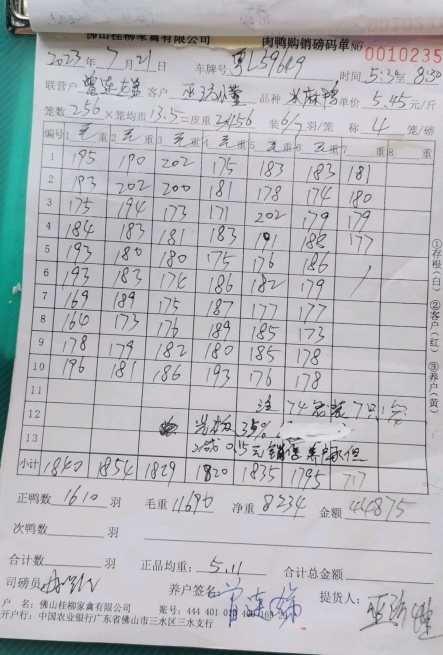 佛山桂柳家禽有限公司 肉鸭购销磅码单 NO 0010235
2023年7月21日 车牌号 时间 5:30至 8:30
联营户 客户 品种 单价 5.45元/斤
笼数 256 ×笼均重 13.5 =皮重 3456 装6/7羽/笼 称 4 笼/磅
编号 1 毛重 2 毛重 3 毛重 4 毛重 5 毛重 6 毛重 7 重 8 重
1 195 190 202 175 183 183 181
2 193 202 200 181 178 174 180
3 175 194 173 171 202 179 179
4 184 183 181 183 191 186 177
5 193 180 180 175 176 186
6 193 183 174 186 182 179
7 169 189 175 187 177 177
8 160 173 176 189 185 173
9 178 179 182 180 185 178
10 196 181 186 193 176 178
11 注 74笼装7只
12 35%
13 0.15元
小计 1840 1854 1829 1820 1835 1795 717
正鸭数 1610 羽 毛重 11690 净重 8234 金额 44875
次鸭数 羽
合计数 羽 正品均重: 5.11 合计总金额
司磅员 养户签名 提货人:
户 名: 佛山桂柳家禽有限公司 账号: 444 401 0
开户行: 中国农业银行广东省佛山市三水区三水支行
①存根(白) ②客户(红) ③养户(黄)